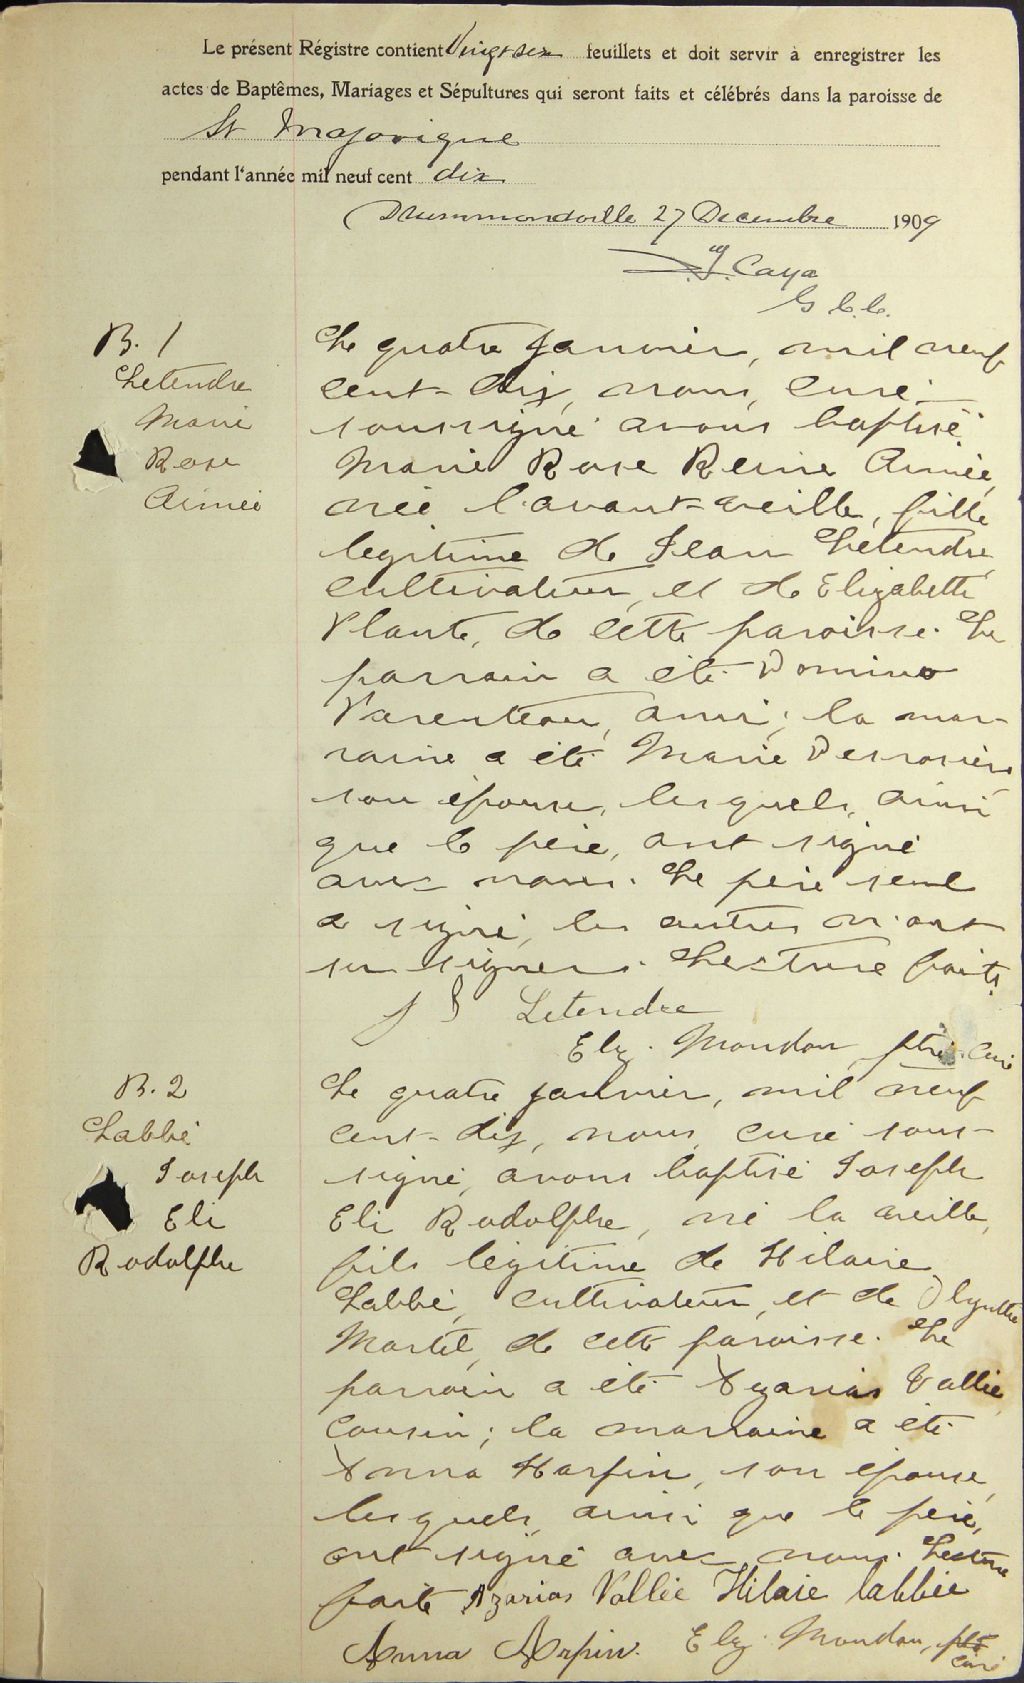 Le présent Régistre contient Vingt six feuillets et doit servir à enregistrer les
actes de Baptêmes, Mariages et Sépultures qui seront faits et célébrés dans la paroisse de
St Majorique
pendant l'année mil neuf cent dix
Drummondville 27 Decembre 1909
Caya
B. 1
Letendre
Marie
Rose
Aimée
Le quatre janvier, mil neuf
cent-dix, nous, curé
soussigné avons baptisé
Marie Rose Reine Aimée,
née l'avant-veille, fille
legitime de Jean Letendre,
cultivateur, et de Elizabeth
Plante, de cette paroisse. Le
parrain a été
Parenteau, ami; la mar-
raine a été Marie Desrosiers
son épouse, lesquels, ainsi
que le père, ont signé
avec nous. Le père seul
a signé, les autres n'ont
su signer. Lecture faite.
J Letendre
Elz. Mondou, ptre. curé
B. 2
Labbé
Joseph
Eli
Rodolphe
Le quatre janvier, mil neuf
cent-dix, nous, curé sous-
signé, avons baptisé Joseph
Eli Rodolphe, né la veille,
fils légitime de Hilaire
Labbé, cultivateur, et de
Martel, de cette paroisse. Le
parrain a été Azarias Vallée,
cousin; la marraine a été
Anna Harpin, son épouse,
lesquels, ainsi que le père,
ont signé avec nous. Lecture
faite Azarias Vallée Hilaie labbée
Anna Arpin. Elz. Mondou, ptre
curé